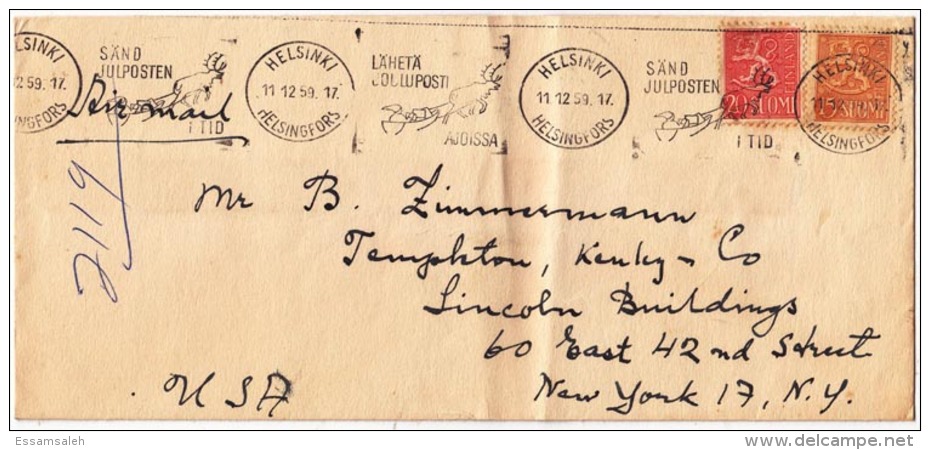 HELSINKI
12 59. 17.
HELSINGFORS
SÄND
JULPOSTEN
I TID
HELSINKI
11 12 59. 17.
HELSINGFORS
LÄHETÄ
JOULUPOSTI
AJOISSA
HELSINKI
11 12 59. 17.
HELSINGFORS
SÄND
JULPOSTEN
I TID
20 SUOMI
FINLAND
5 SUOMI
HELSINKI
HELSINGFORS
Air mail
2119
Mr B. Zimmermann
Templeton, Kenly - Co
Lincoln Buildings
60 East 42 nd Street
New York 17, N.Y.
USA
Essamsaleh
www.delcampe.net